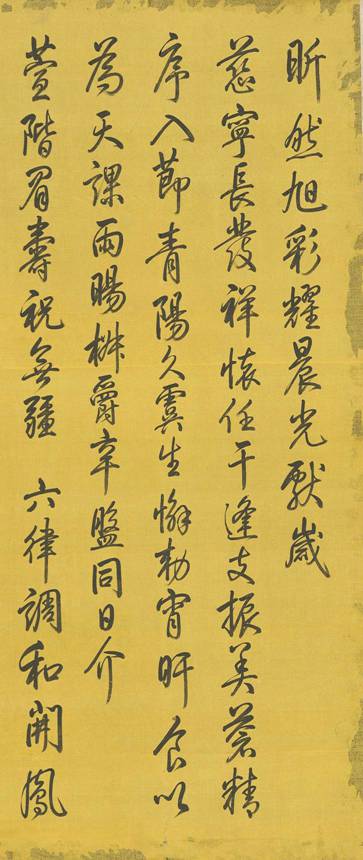 昕然旭彩耀晨光獻歲
慈寧長發祥懷任干逢支振美蒼精
序入節青陽久虞生懈勑宵旰食以
為天課雨暘椒爵辛盤同日介
萱階眉壽祝無疆 六律調和開鳳